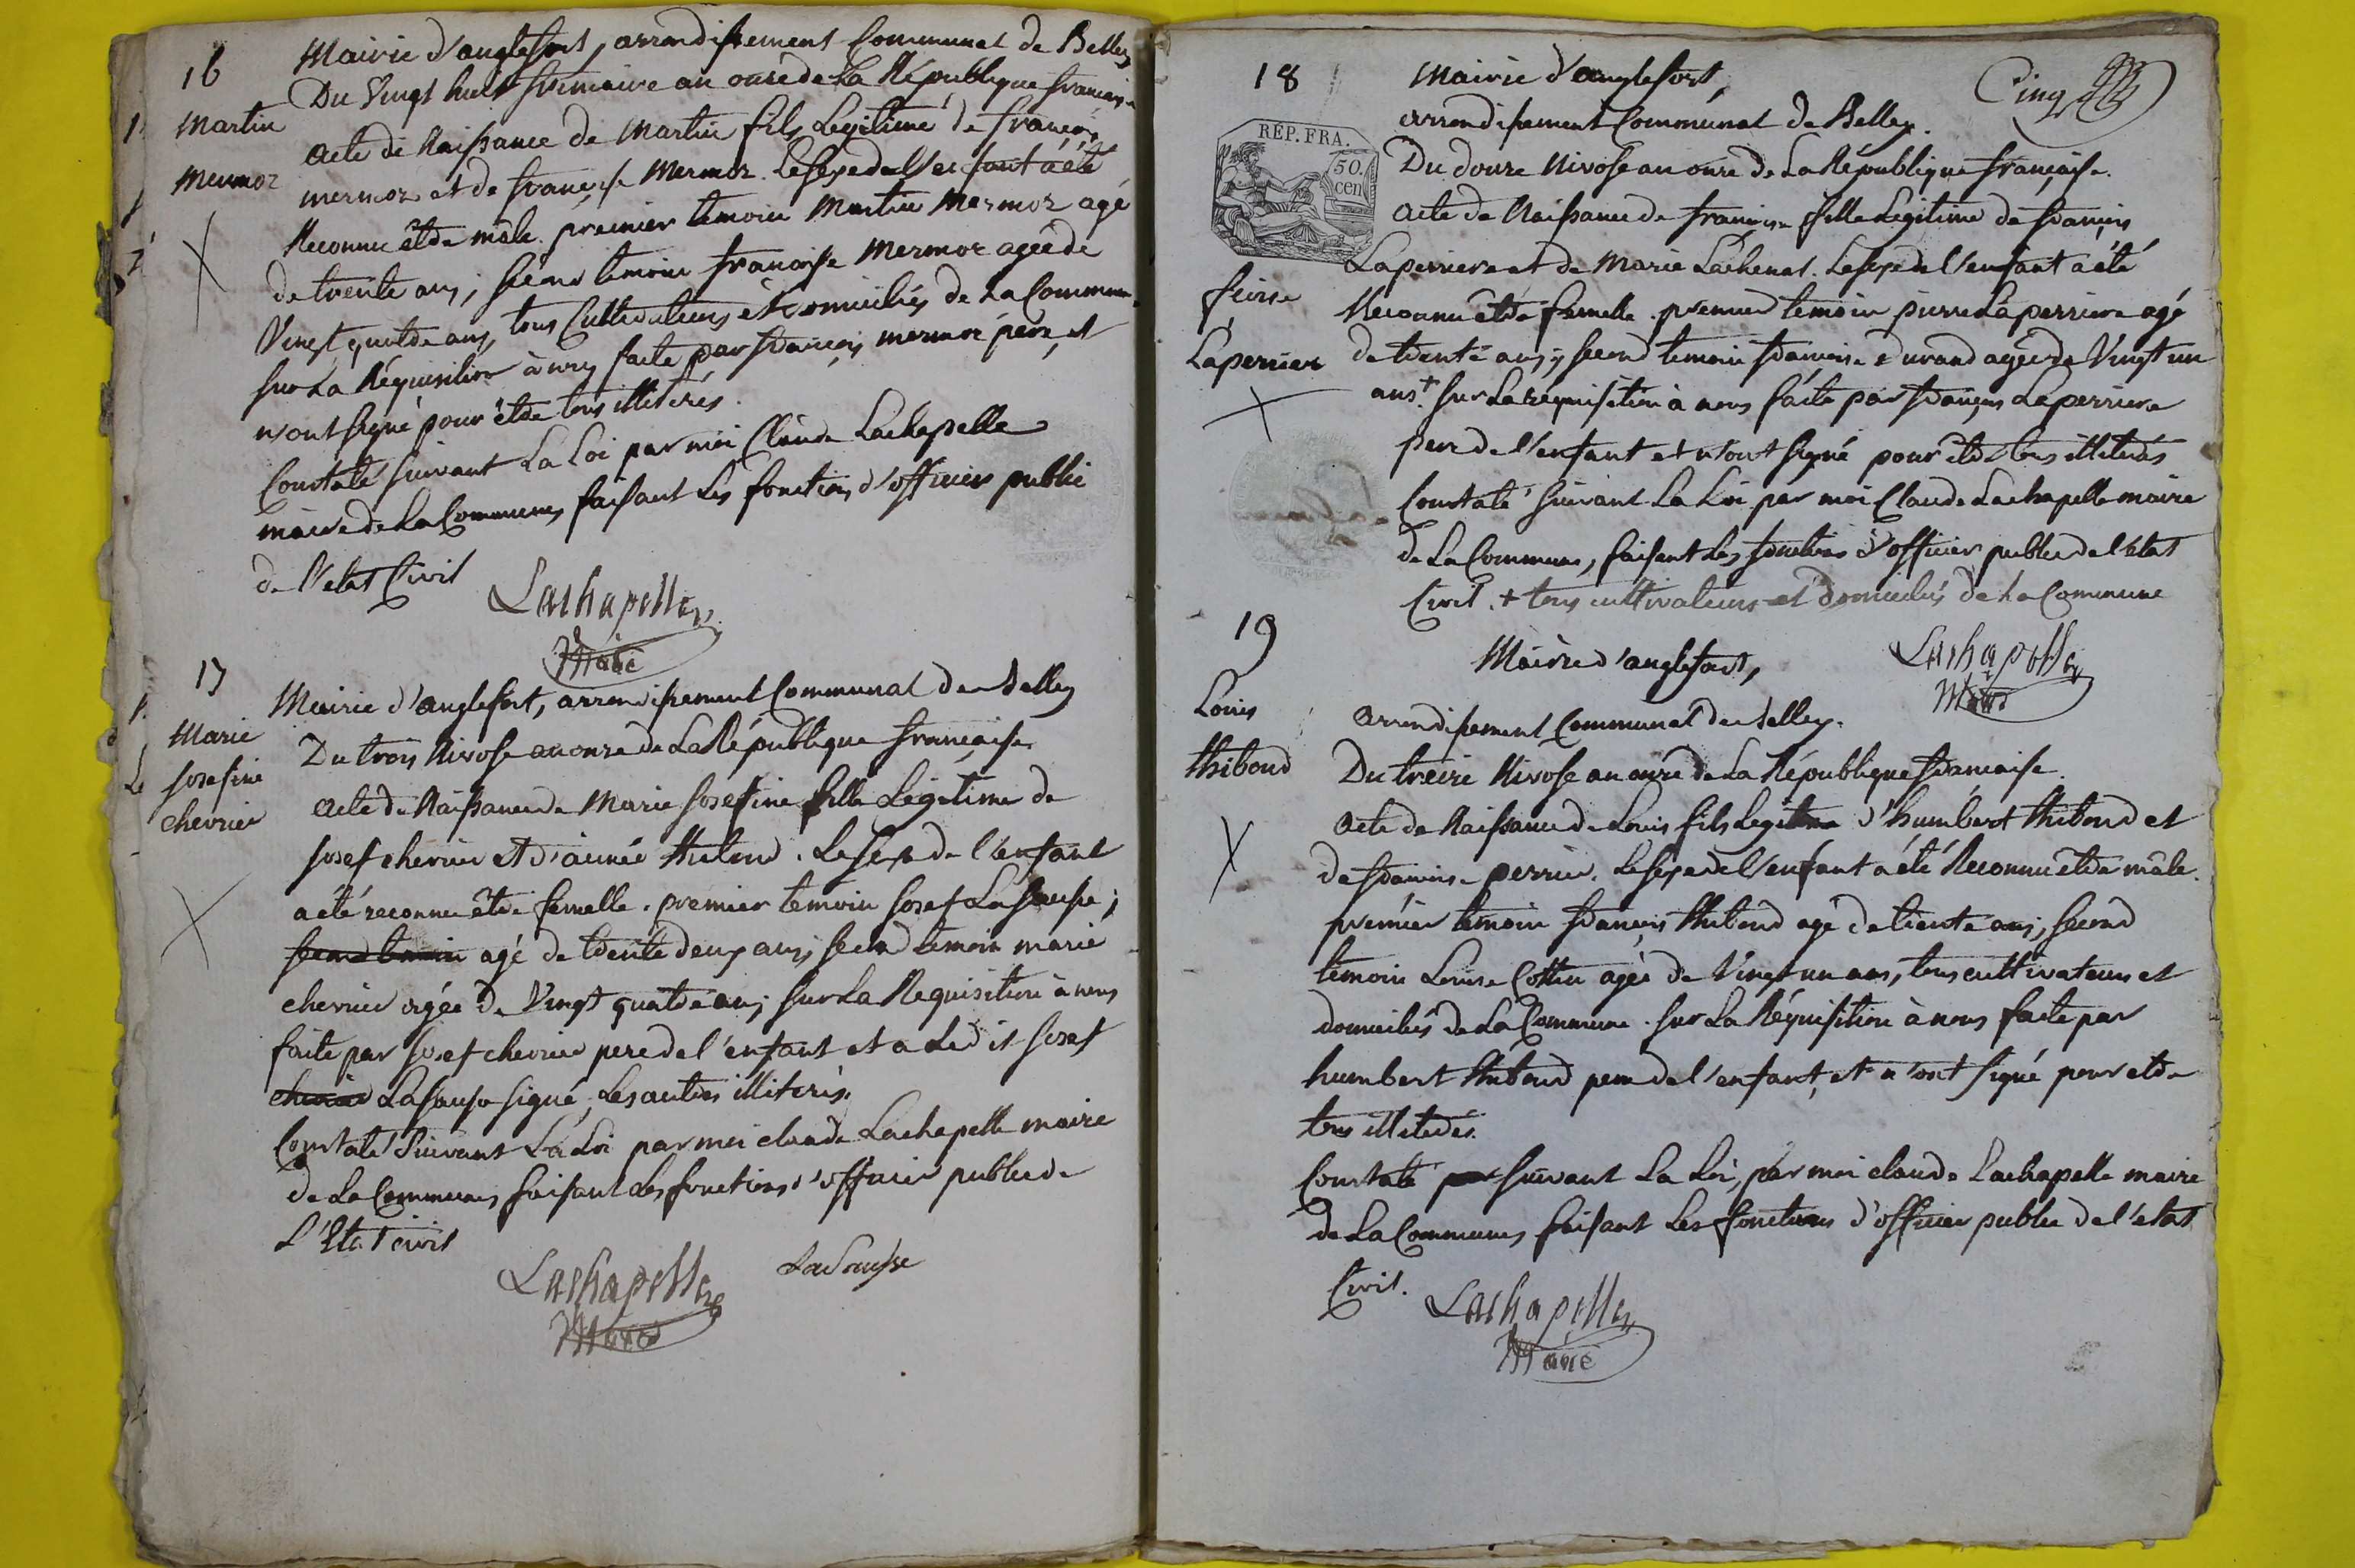 16
Martin
Mermoz
Mairie d'anglefort, arrondissement Communal de Belley
Du Vingt huit frimaire an onze de La République française
acte de Naissance de Martin fils Légitime de françois
mermoz et de françoise Mermoz. Le sexe de l'enfant à été
Reconnu être mâle. premier temoin Martin Mermoz agé
de trente ans, second temoin françoise Mermoz agée de
Vingt quatre ans, tous Cultivateurs et domiciliés de La Commune
sur La Réquisition à nous faite par françois mermoz père, et
n'ont signé pour être tous illiterés.
Constaté suivant La Loi par moi Claude Lachapelle
maire de La Commune, faisant Les fonctions d'officier public
de l'etat Civil
Lachapelle
Maire
17
Marie
Josefine
chevrier
Mairie d'anglefort, arrondissement Communal de Belley
Du trois Nivose an onze de La République française
acte de Naissance de Marie Josefine fille Légitime de
Josef chevrier et d'aimée thiboud. Le sexe de l'enfant
a été reconnu être femelle. premier temoin Josef Lasausse;
second temoin agé de trente deux ans, second temoin marie
chevrier agée de Vingt quatre ans; sur La Requisition à nous
faite par Josef chevrier pere de l'enfant et a Ledit Josef
chevrier Lasausse signé, Les autres illiterés.
Constaté suivant La Loi par moi claude Lachapelle maire
de La Commune, faisant Les fonctions d'officier public de
L'Etat civil
Lachapelle LaSausse
Maire
18
Cinq
Mairie d'anglefort,
arrondissement Communal de Belley.
REP. FRA.
50.
cen
Du douze Nivose an onze de La République française.
acte de Naissance de françoise fille Légitime de françois
Laperriere et de Marie Lachenal. Le sexe de l'enfant a été
Reconnu être femelle. premier temoin pierre Laperriere agé
de trente ans; second temoin françoise durand agée de Vingt un
ans + sur La requisition à nous faite par françois Laperriere
pere de l'enfant et n'ont signé pour être tous illiterés
Constaté suivant La Loi par moi Claude Lachapelle maire
de La Commune, faisant Les fonctions d'officier public de l'etat
Civil. + tous cultivateurs et domiciliés de La Commune
Laperrier
Lachapelle
Maire
19
Louis
thiboud
Mairie d'anglefort,
arrondissement Communal de Belley.
Du treize Nivose an onze de La République française.
acte de Naissance de Louis fils Legitime d'humbert thiboud et
de françoise perrier. Le sexe de l'enfant a été Reconnu être mâle.
premier temoin françois thiboud agé de trente ans, second
temoin Louise Cottin agée de Vingt un ans, tous cultivateurs et
domiciliés de La Commune. sur La Réquisition à nous faite par
humbert thiboud pere de l'enfant, et n'ont signé pour etre
tous illiterés.
Constaté par suivant La Loi, par moi claude Lachapelle maire
de La Commune, faisant Les fonctions d'officier public de l'etat
Civil.
Lachapelle
Maire